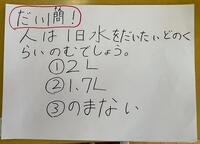 だい1問!
人は1日水をだいたいどのく
らいのむでしょう。
①2L
②1.7L
③のまない